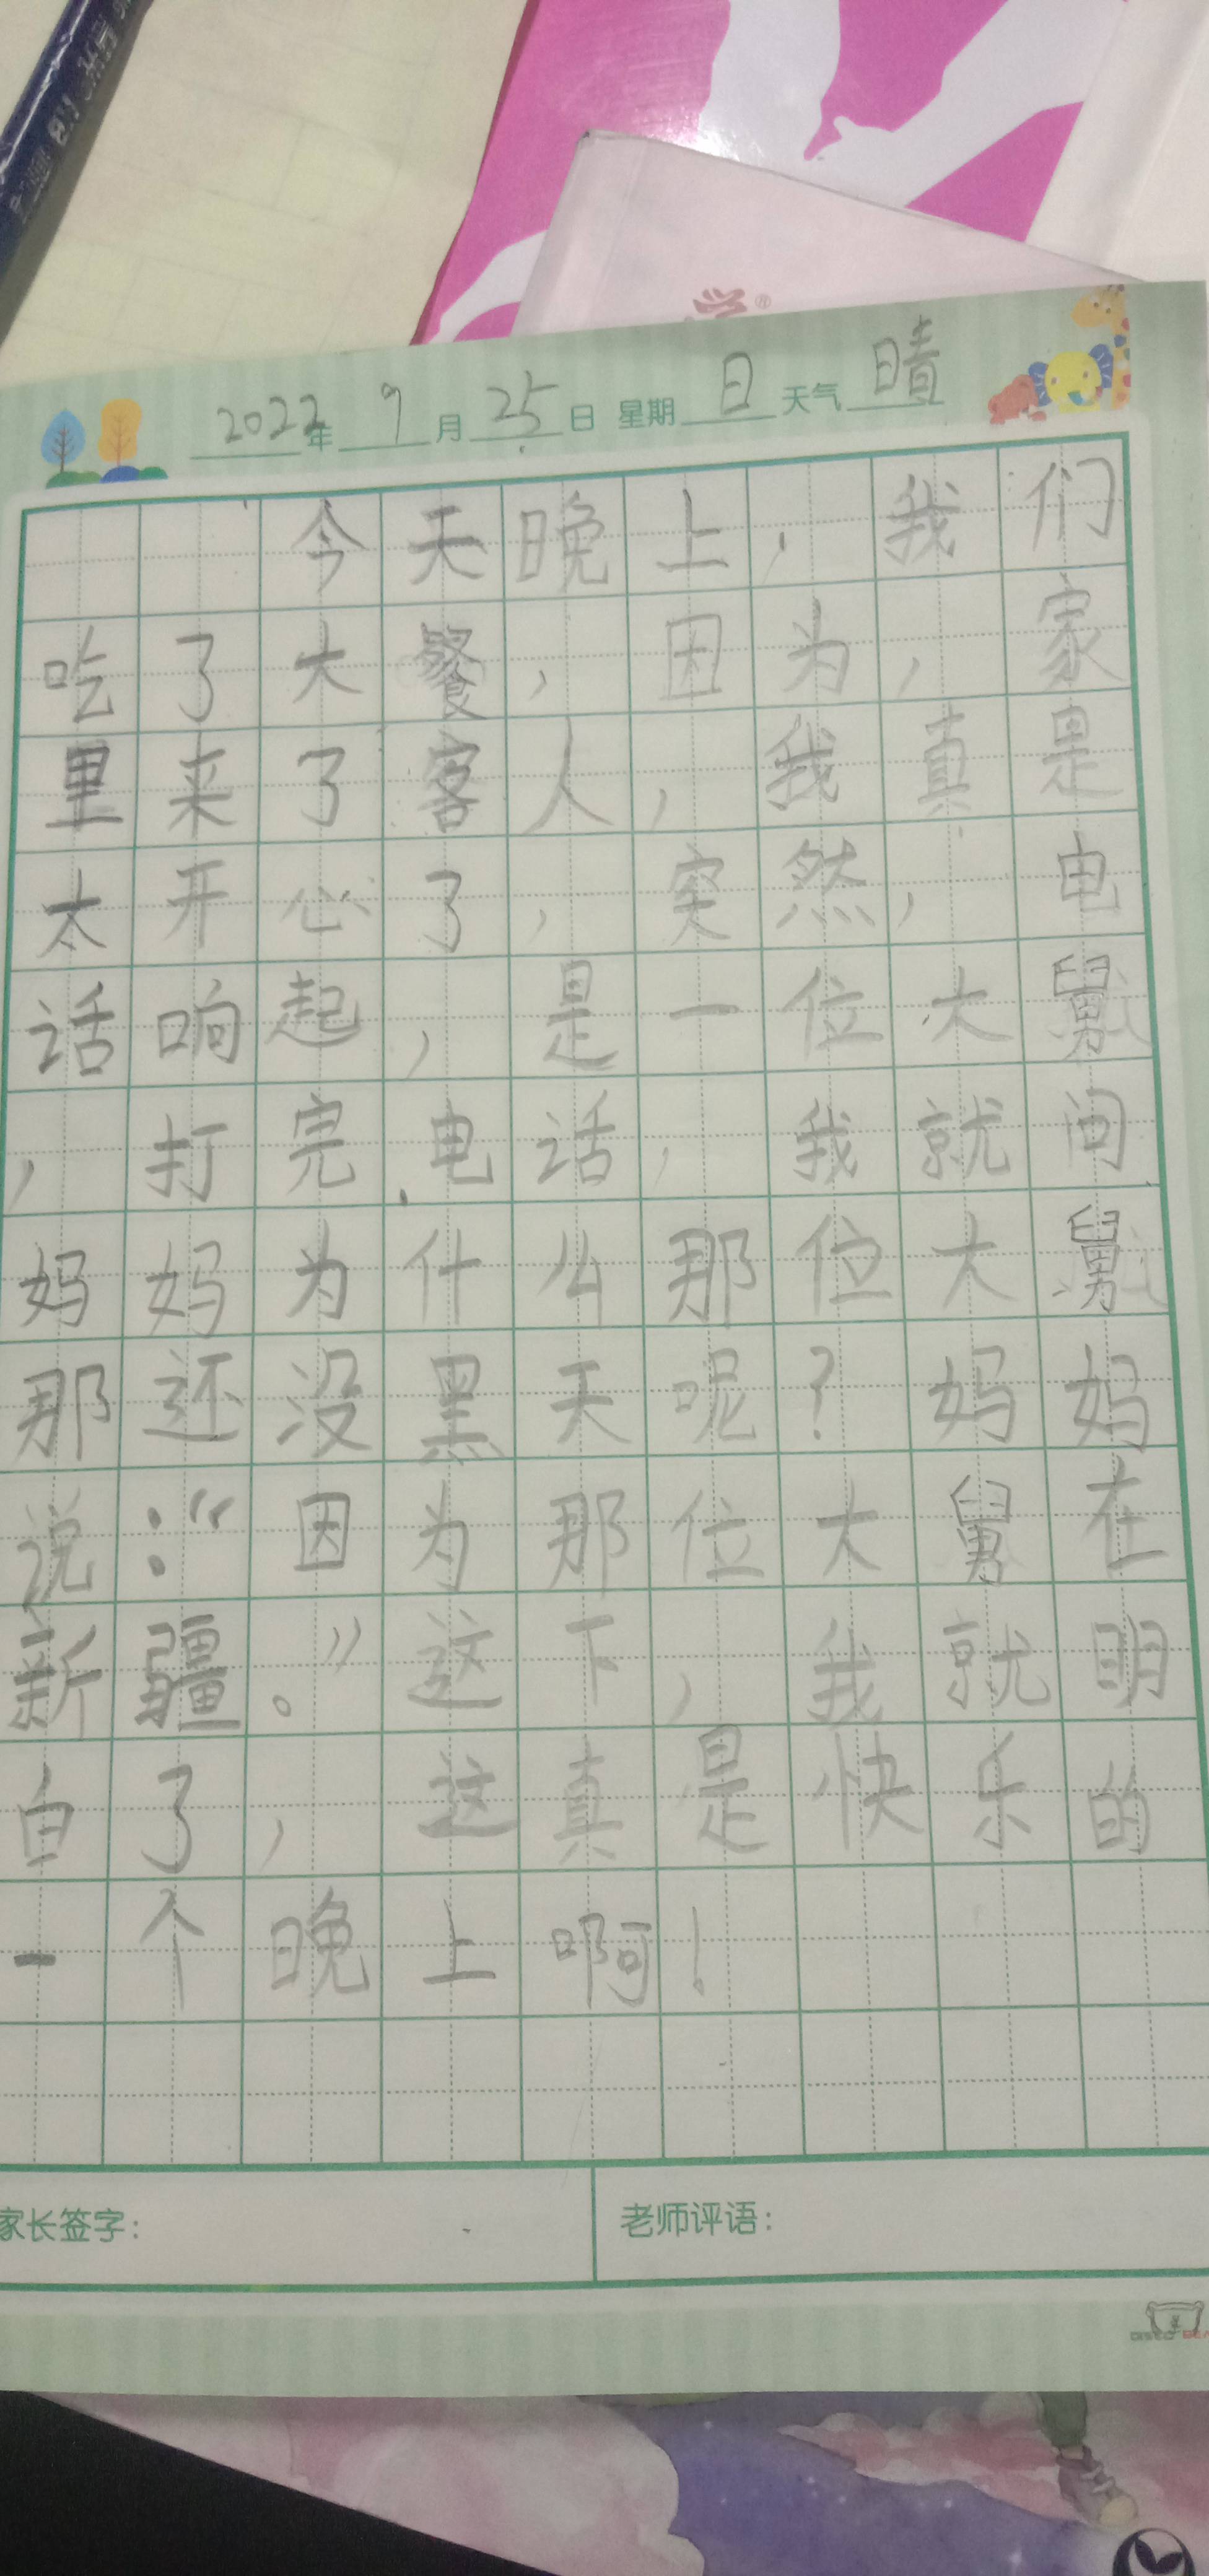 学®
2022年9月25日 星期日 天气晴
今天晚上，我们
吃了大餐，因为，家
里来了客人，我真是
太开心了，突然，电
话响起，是一位大舅
，打完电话，我就问
妈妈为什么那位大舅
那还没黑天呢？妈妈
说：“因为那位大舅在
新疆。”这下，我就明
白了，这真是快乐的
一个晚上啊！
家长签字：
老师评语：